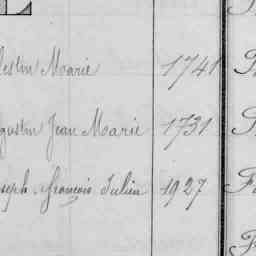 lestin Marie 1741
gustin Jean Marie 1731
oseph François Julien 1927